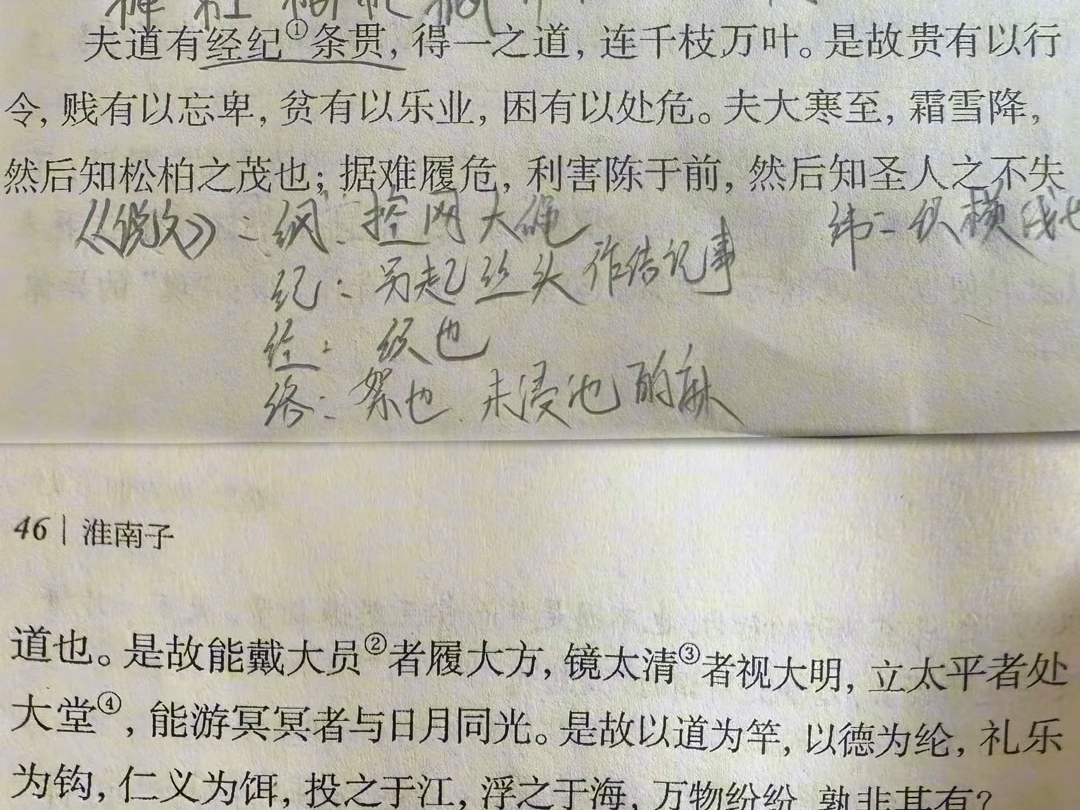 夫道有经纪①条贯，得一之道，连千枝万叶。是故贵有以行
令，贱有以忘卑，贫有以乐业，困有以处危。夫大寒至，霜雪降，
然后知松柏之茂也；据难履危，利害陈于前，然后知圣人之不失
《说文》：纲：控网大绳 纬：织横线也
纪：另起丝头 作传记事
经：织也
络：絮也 未浸池的麻
46 | 淮南子
道也。是故能戴大员②者履大方，镜太清③者视大明，立太平者处
大堂④，能游冥冥者与日月同光。是故以道为竿，以德为纶，礼乐
为钩，仁义为饵，投之于江，浮之于海，万物纷纷，孰非其有？